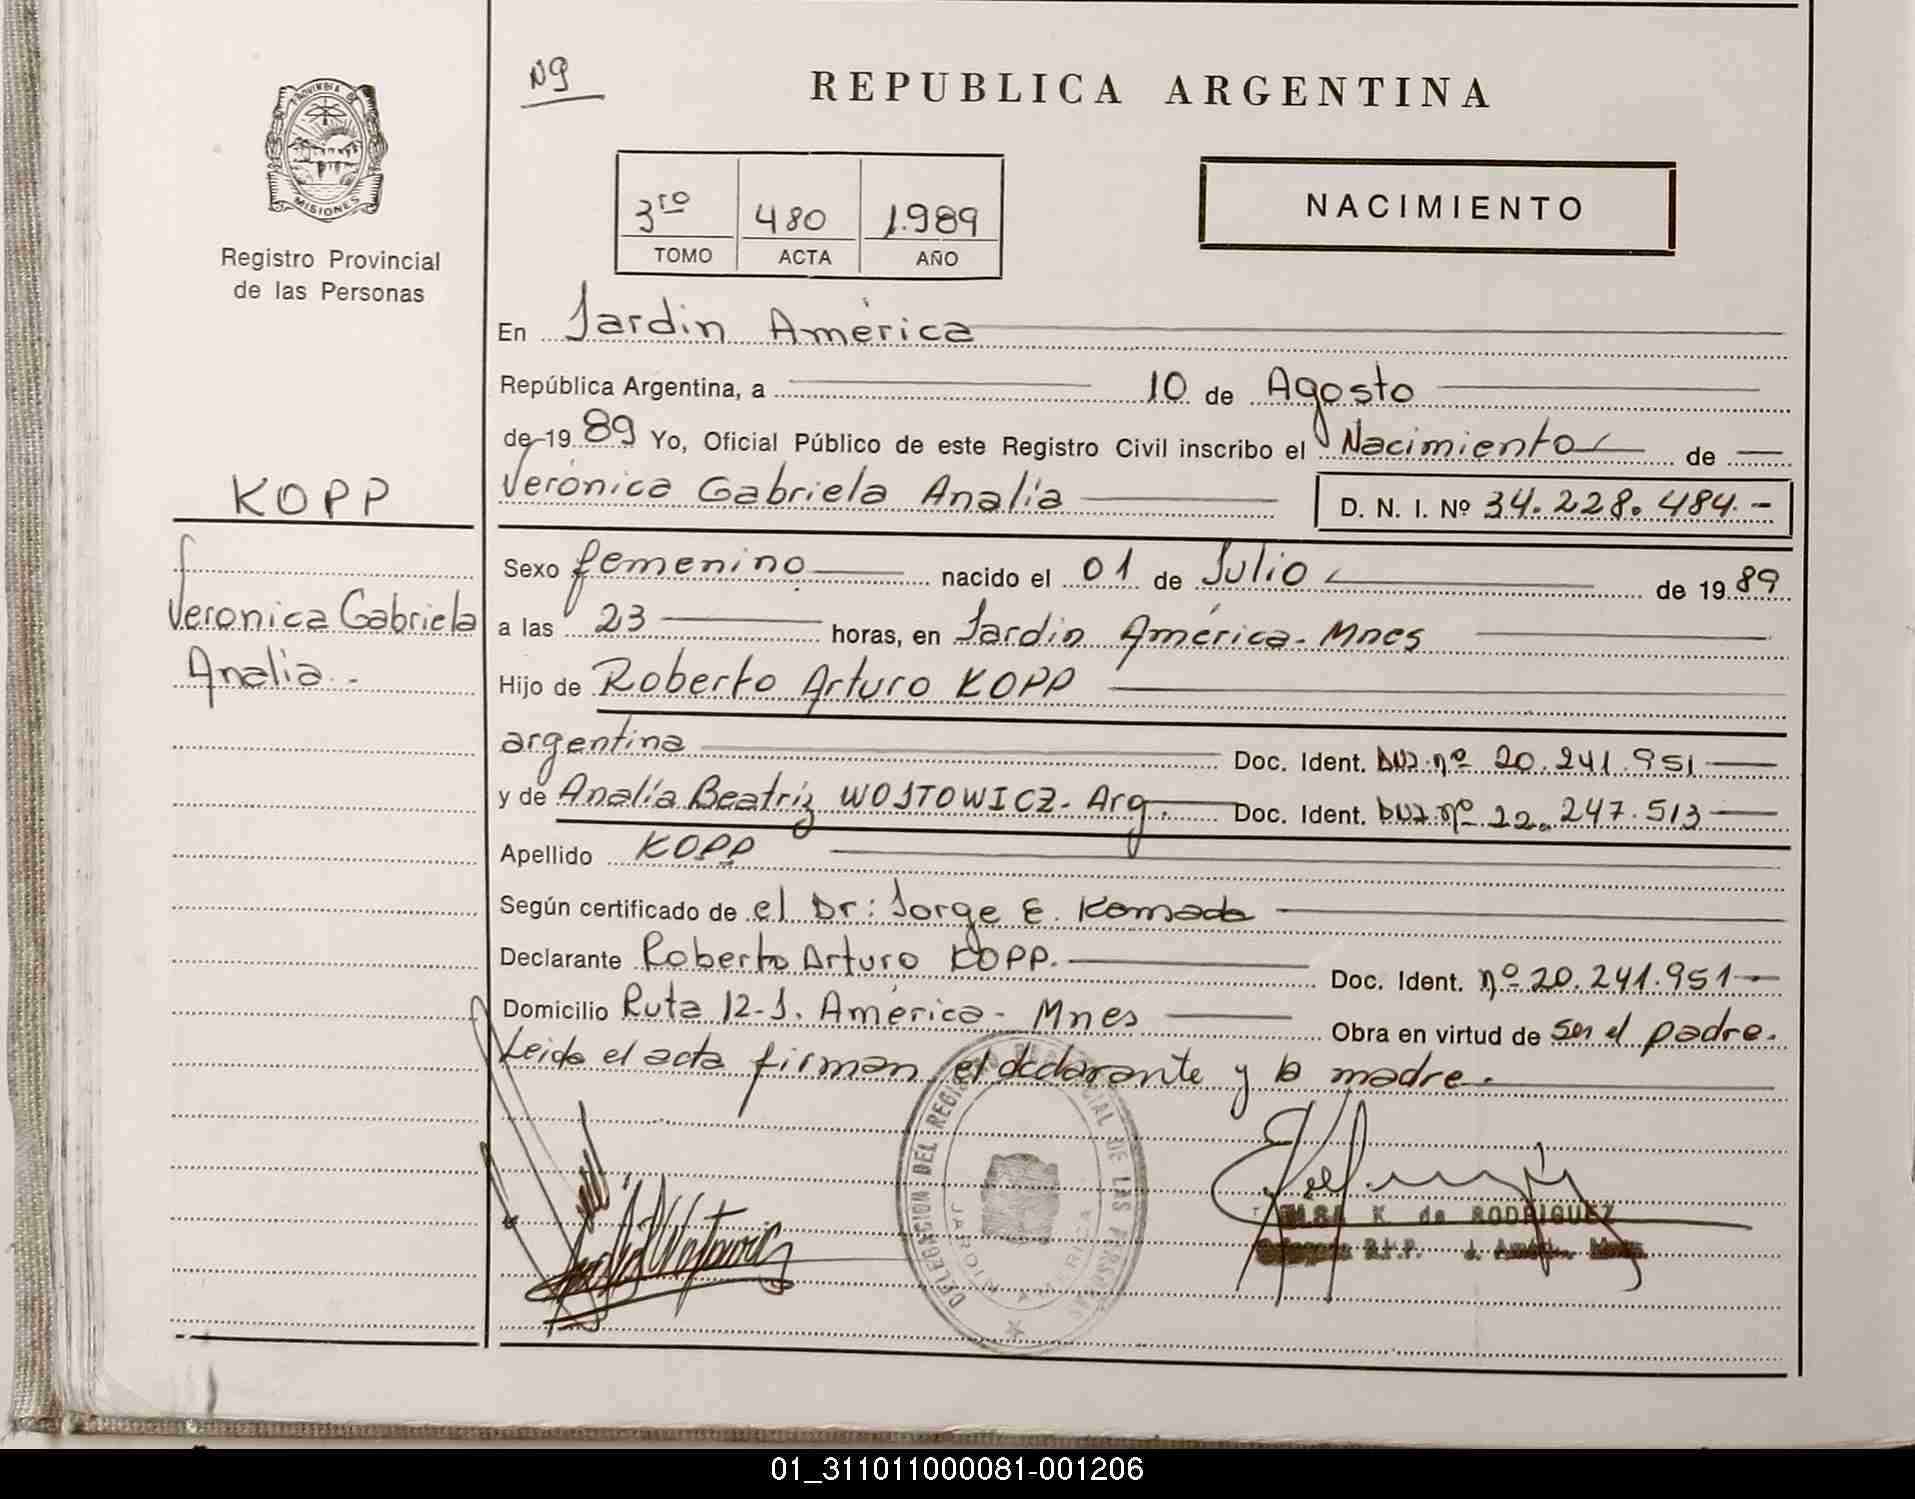 PROVINCIA DE
MISIONES
Registro Provincial
de las Personas
KOPP
Veronica Gabriela
Analia.-
Ng
REPUBLICA ARGENTINA
3ro 480 1.989
TOMO ACTA AÑO
NACIMIENTO
En Jardin América
República Argentina, a 10 de Agosto
de 19 89 Yo, Oficial Público de este Registro Civil inscribo el Nacimiento de
Verónica Gabriela Analía D. N. I. Nº 34.228.484.-
Sexo femenino nacido el 01 de Julio de 19 89
a las 23 horas, en Jardin América- Mnes
Hijo de Roberto Arturo KOPP
argentina Doc. Ident. DNI nº 20.241.951
y de Analía Beatriz WOJTOWICZ- Arg. Doc. Ident. DNI nº 22.247.513
Apellido KOPP
Según certificado de el Dr: Jorge E. Komada
Declarante Roberto Arturo KOPP. Doc. Ident. nº 20.241.951
Domicilio Ruta 12-J. América- Mnes Obra en virtud de ser el padre.
Leida el acta firman el declarante y la madre.
DELEGACION DEL REGISTRO PROVINCIAL DE LAS PERSONAS
JARDIN AMERICA
K. de RODRIGUEZ
01_311011000081-001206